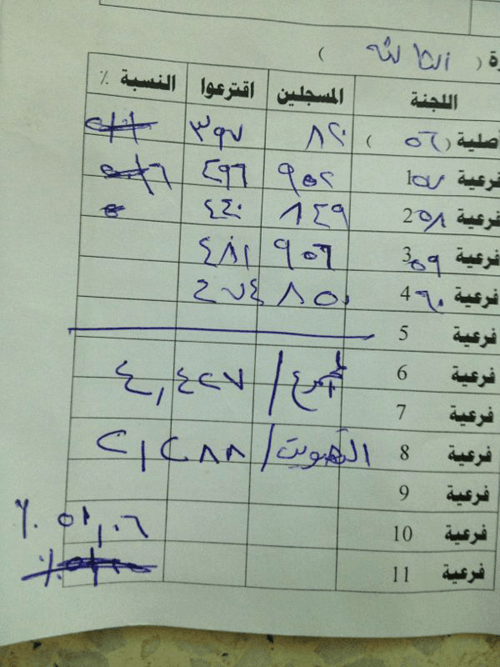 رة ( الثالثه )
اللجنة المسجلين اقترعوا النسبة ٪
صلية ( ٥٦ ) ٨٢٠ ٣٩٧
فرعية 1 ٥٧ ٩٥٢ ٤٩٦
فرعية 2 ٥٨ ٨٤٩ ٤٤٠
فرعية 3 ٥٩ ٩٥٦ ٤٨١
فرعية 4 ٦٠ ٨٥٠ ٤٧٤
فرعية 5
فرعية 6 المجموع / ٤,٤٢٧
فرعية 7
فرعية 8 التصويت / ٢,٢٨٨
فرعية 9
فرعية 10 ٥١,٠٦ ٪
فرعية 11